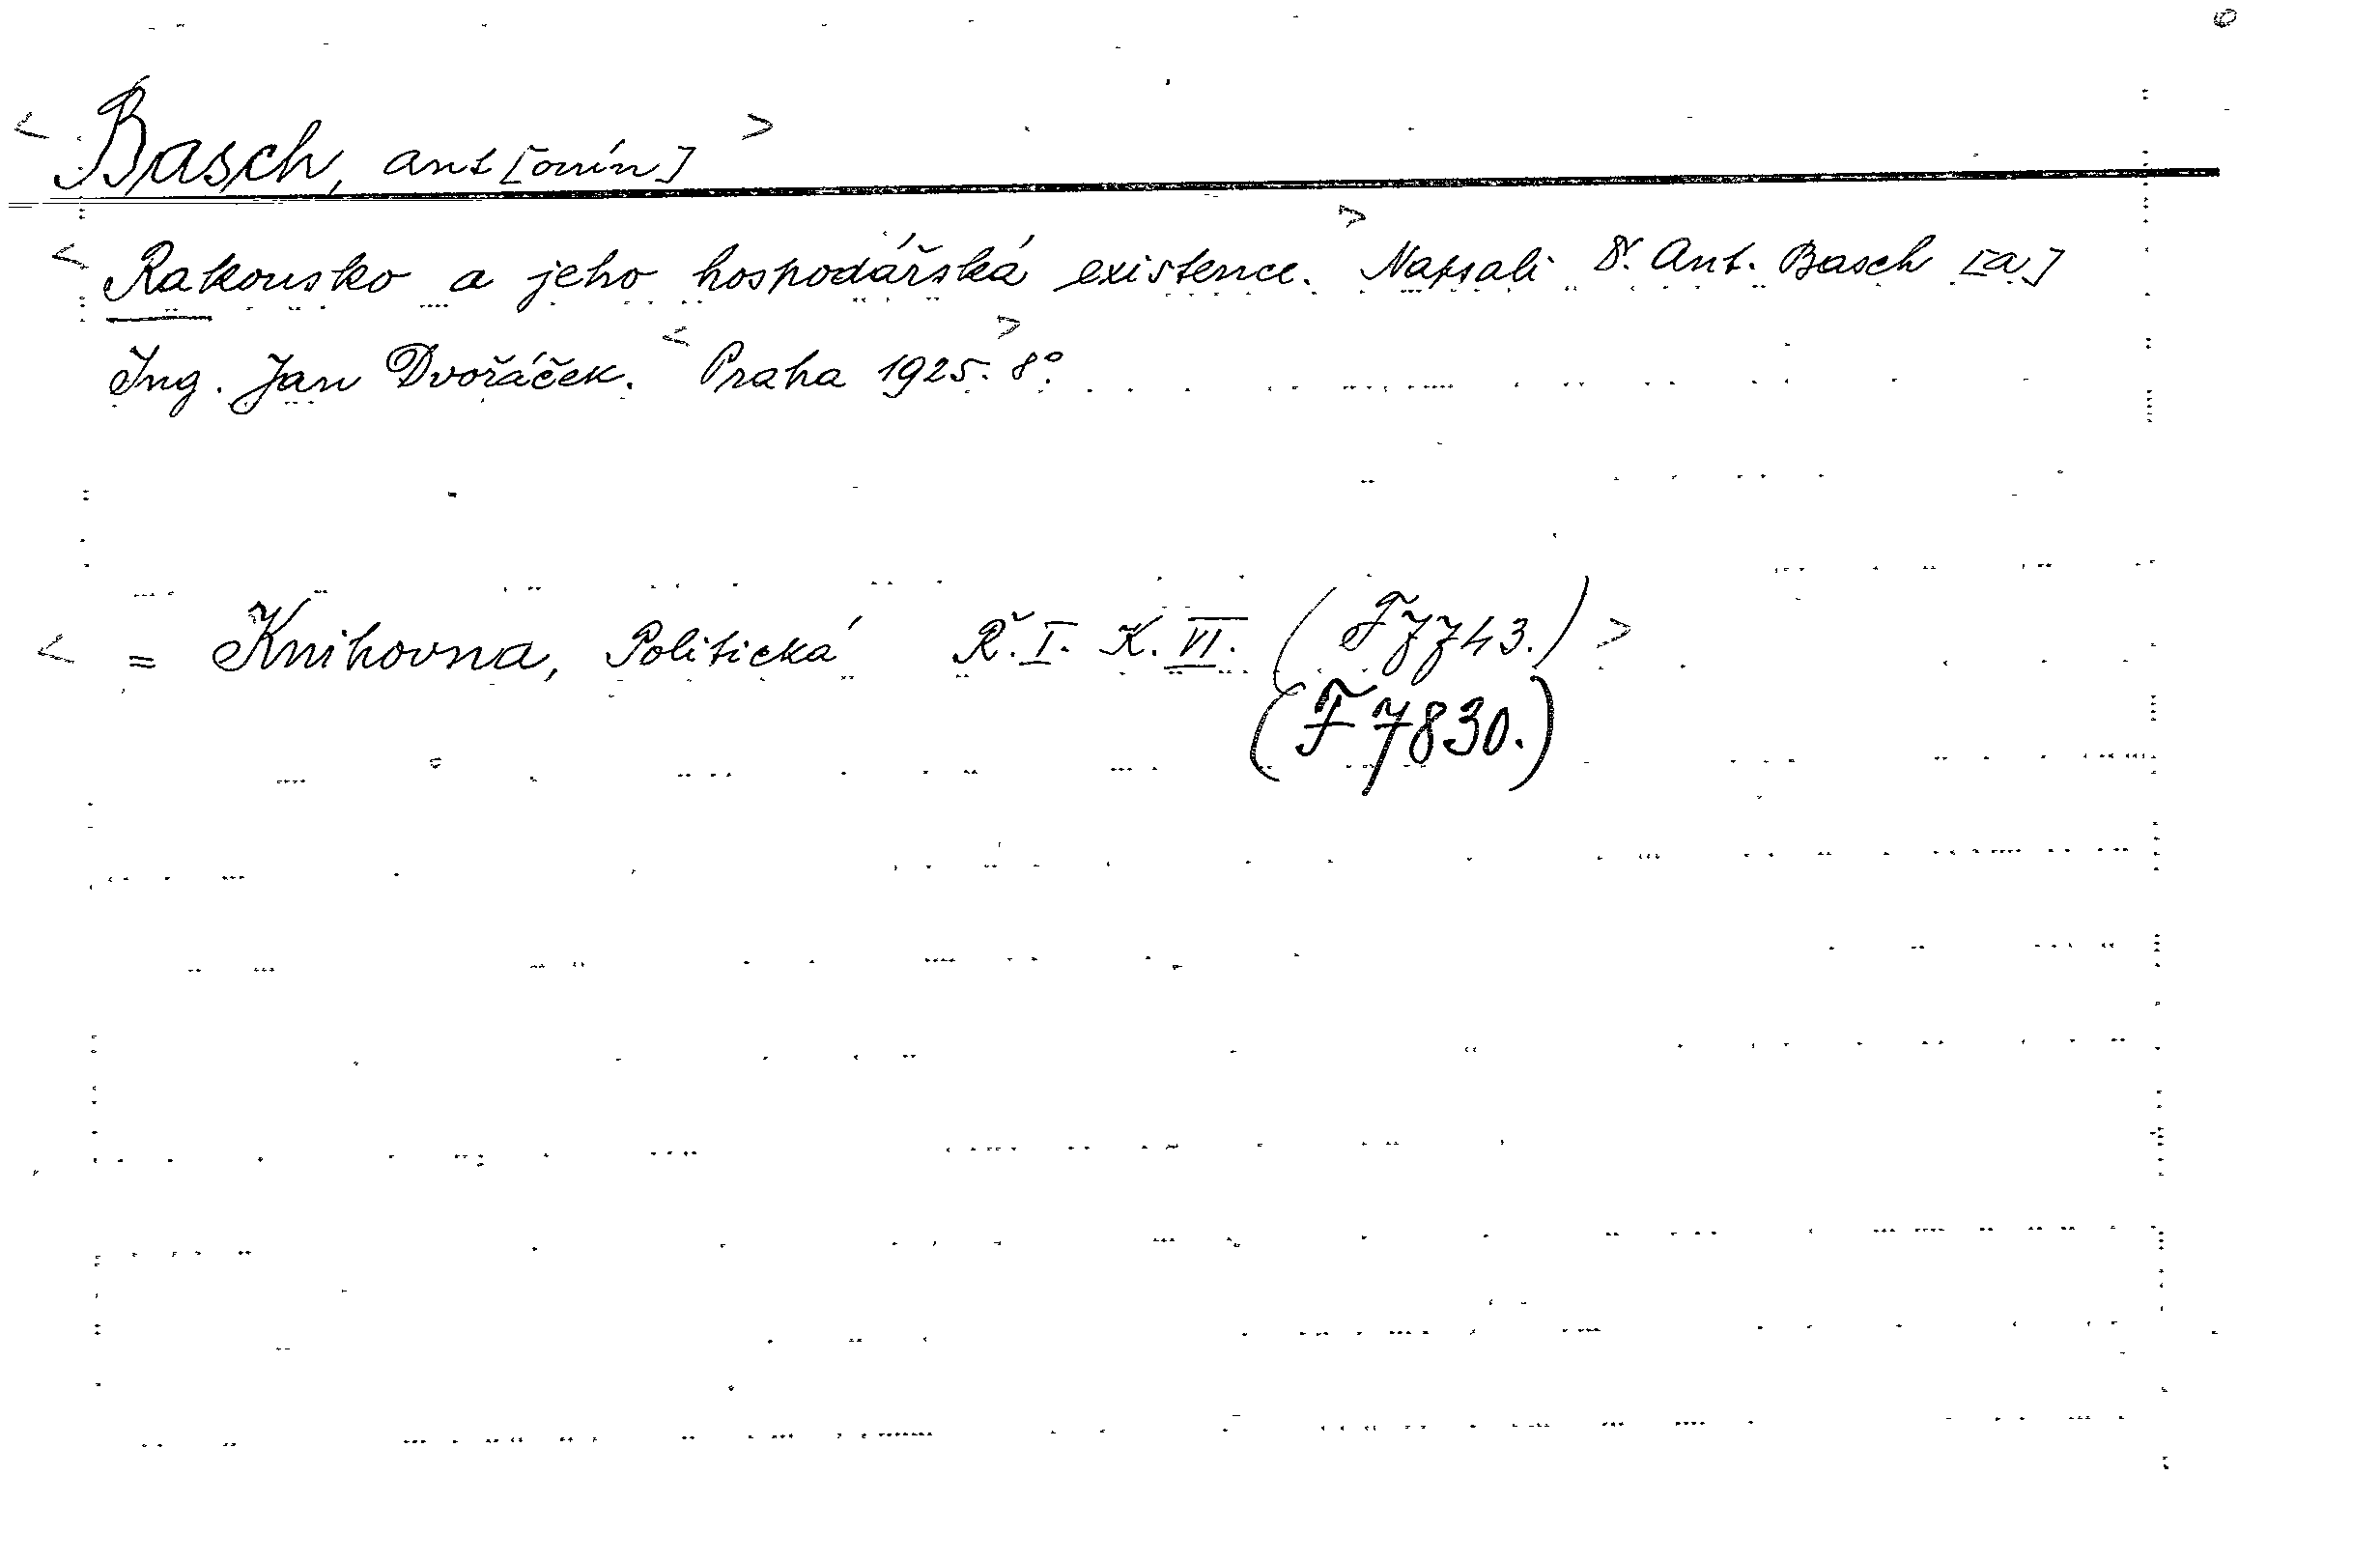 < Basch, Ant[onín] >
< Rakousko a jeho hospodářská existence. > Napsali Dr. Ant. Basch [a]
Ing. Jan Dvořáček. < Praha 1925. > 8°.
< = Knihovna, Politická Ř. I. K. VI. (F 7743.) >
(F 7830.)